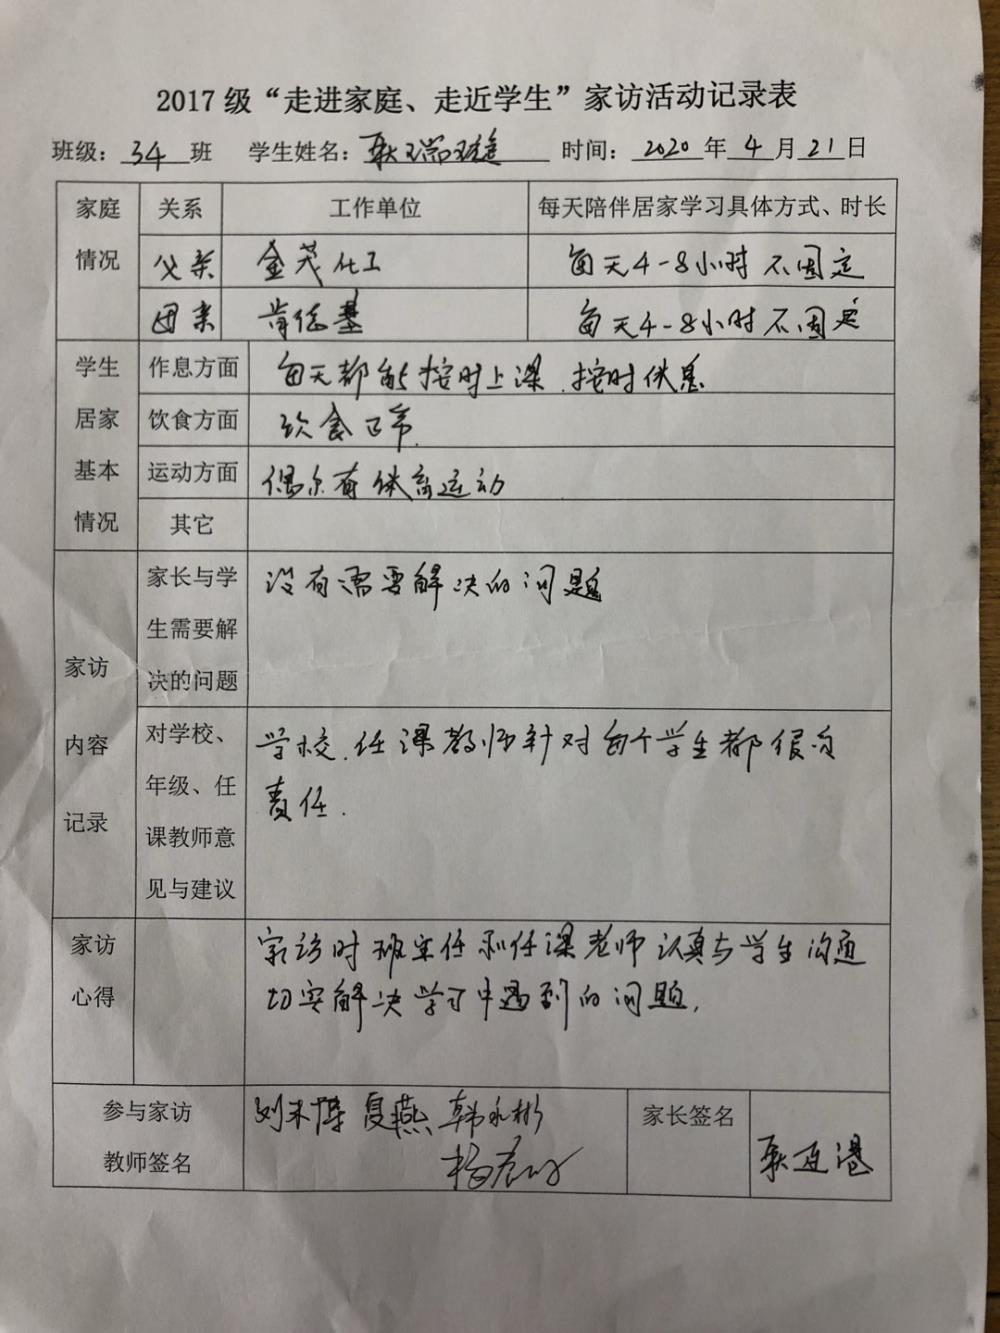 2017 级“走进家庭、走近学生”家访活动记录表
班级：34班 学生姓名：耿瑞 时间：2020年4月21日
家庭情况 关系 工作单位 每天陪伴居家学习具体方式、时长
父亲 金茂化工 每天4-8小时 不固定
母亲 肯德基 每天4-8小时 不固定
学生居家基本情况 作息方面 每天都能按时上课.按时休息
饮食方面 饮食正常.
运动方面 偶尔有体育运动
其它
家访内容记录 家长与学 没有需要解决的问题
生需要解
决的问题
对学校、 学校.任课教师针对每个学生都很负
年级、任 责任.
课教师意
见与建议
家访 家访时班主任和任课老师认真与学生沟通
心得 切实解决学习中遇到的问题.
参与家访 夏燕 韩永彬 家长签名
教师签名 耿连港